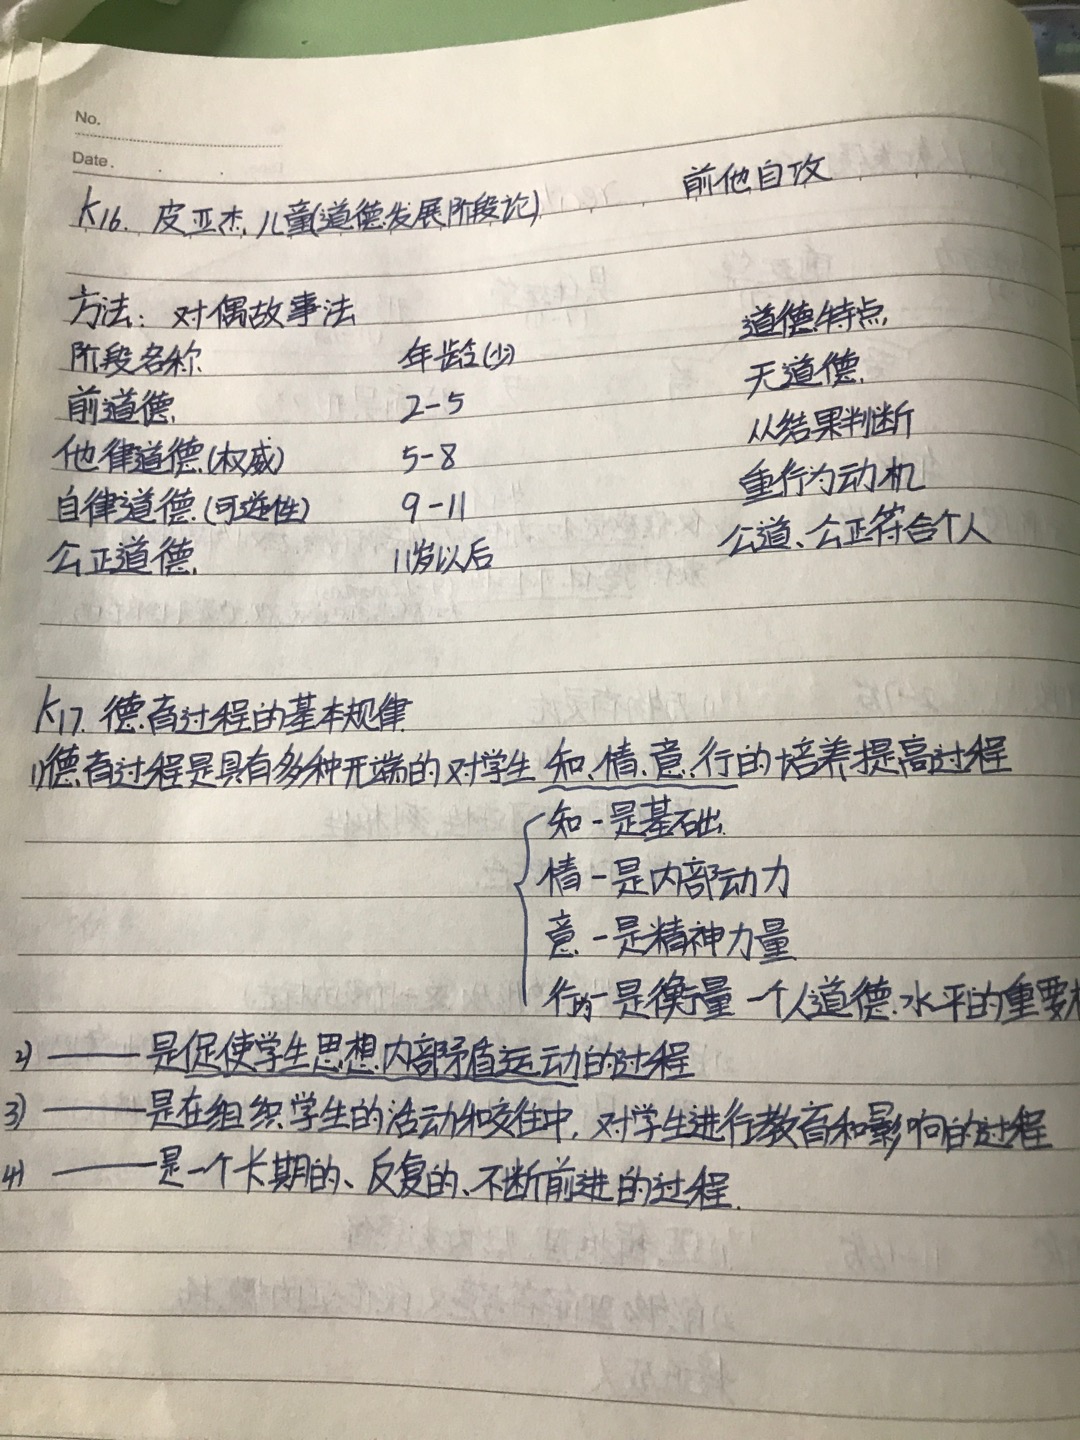 No.
Date.
前他自攻
K16. 皮亚杰儿童(道德发展阶段论)
方法: 对偶故事法
阶段名称 年龄(岁) 道德特点
前道德 2-5 无道德
他律道德(权威) 5-8 从结果判断
自律道德(可逆性) 9-11 重行为动机
公正道德 11岁以后 公道、公正符合个人
K17. 德育过程的基本规律
1)德育过程是具有多种开端的对学生知、情、意、行的培养提高过程
知-是基础
情-是内部动力
意-是精神力量
行-是衡量一个人道德水平的重要
2) ——是促使学生思想内部矛盾运动的过程
3) ——是在组织学生的活动和交往中, 对学生进行教育和影响的过程
4) ——是一个长期的、反复的、不断前进的过程